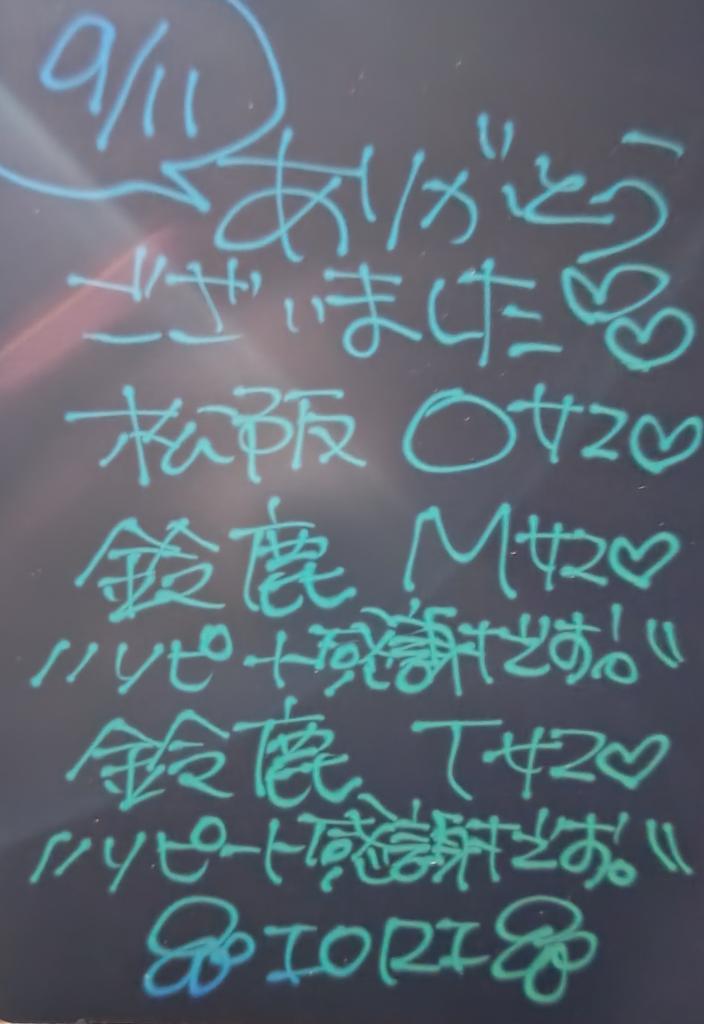 9/11
ありがとう
ございました♡♡
松阪 Oサマ♡
鈴鹿 Mサマ♡
〃リピート感謝です!。〃
鈴鹿 Tサマ♡
〃リピート感謝です!。〃
IORI